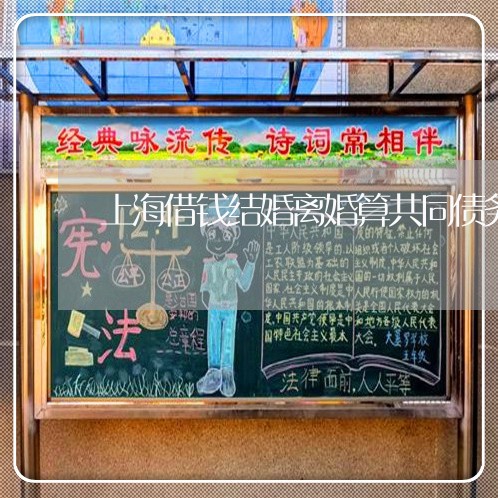 经典咏流传 诗词常相伴
上海借钱结婚离婚算共同债务
宪
法
公平
公正
总章程
中华人民共和国
是工人阶级领导的,以
工农联盟为基础的
国家,社会主义制度是中
华人民共和国的根本制
度,中国共产党领导是中
国特色社会主义最本
质的特征,禁止任何
组织或者个人破坏社会
主义制度,中华人民共和
国的一切权利属于人民,
人民行使国家权力的机
关是全国人民代表大会
和地方各级人民代表
大会。
五年级
法律面前,人人平等